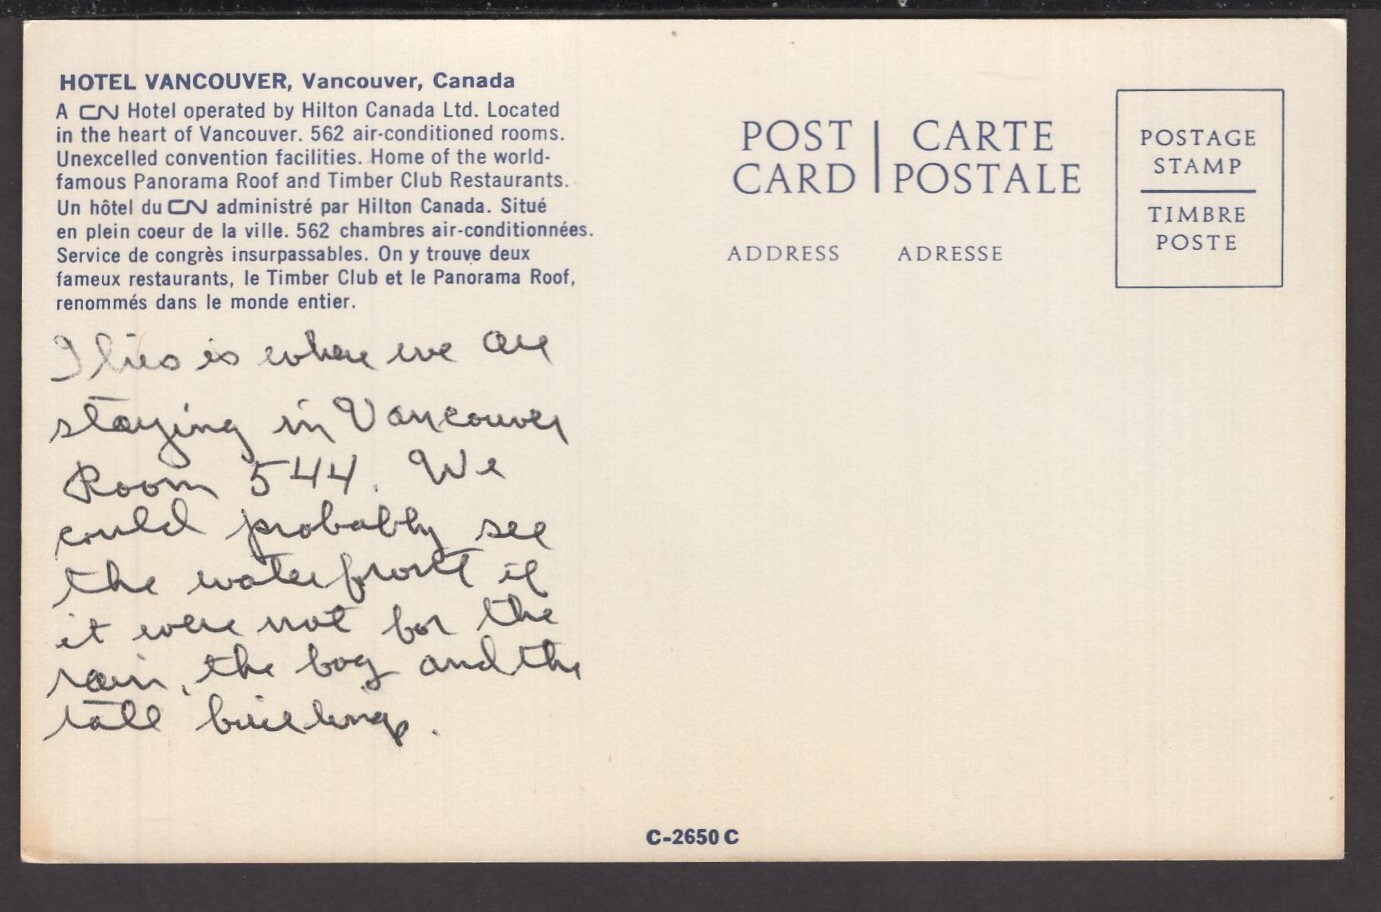 HOTEL VANCOUVER, Vancouver, Canada
A CN Hotel operated by Hilton Canada Ltd. Located
in the heart of Vancouver. 562 air-conditioned rooms.
Unexcelled convention facilities. Home of the world-
famous Panorama Roof and Timber Club Restaurants.
Un hôtel du CN administré par Hilton Canada. Situé
en plein coeur de la ville. 562 chambres air-conditionnées.
Service de congrès insurpassables. On y trouve deux
fameux restaurants, le Timber Club et le Panorama Roof,
renommés dans le monde entier.
This is where we are
staying in Vancouver
Room 544. We
could probably see
the waterfront if
it were not for the
rain, the fog and the
tall buildings.
POST CARD | CARTE POSTALE
ADDRESS ADRESSE
POSTAGE
STAMP
TIMBRE
POSTE
C-2650 C